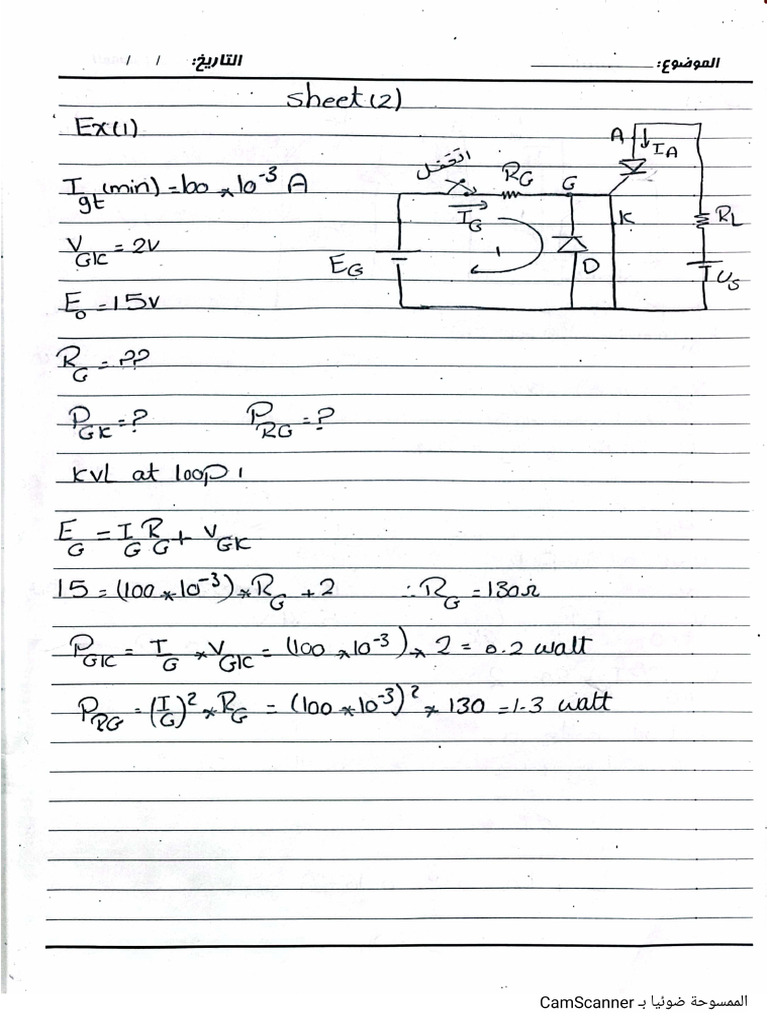 الموضوع: التاريخ: / /
Sheet(2)
Ex(1)
I gt (min) = 100 * 10^-3 A
V GK = 2V
E o = 15V
R G = ??
P GK = ? P RG = ?
A I A
R G G
I G
K R L
E G 1 D U S
KVL at loop 1
E G = I G R G + V GK
15 = (100 * 10^-3) * R G + 2 ∴ R G = 130Ω
P GK = I G * V GK = (100 * 10^-3) * 2 = 0.2 watt
P RG = (I G)^2 * R G = (100 * 10^-3)^2 * 130 = 1.3 watt
الممسوحة ضوئيا بـ CamScanner